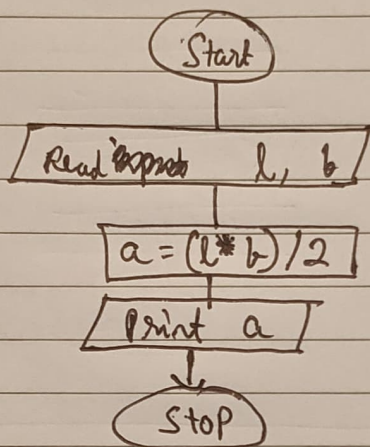 Start
Read l, b
a = (l * b) / 2
Print a
Stop